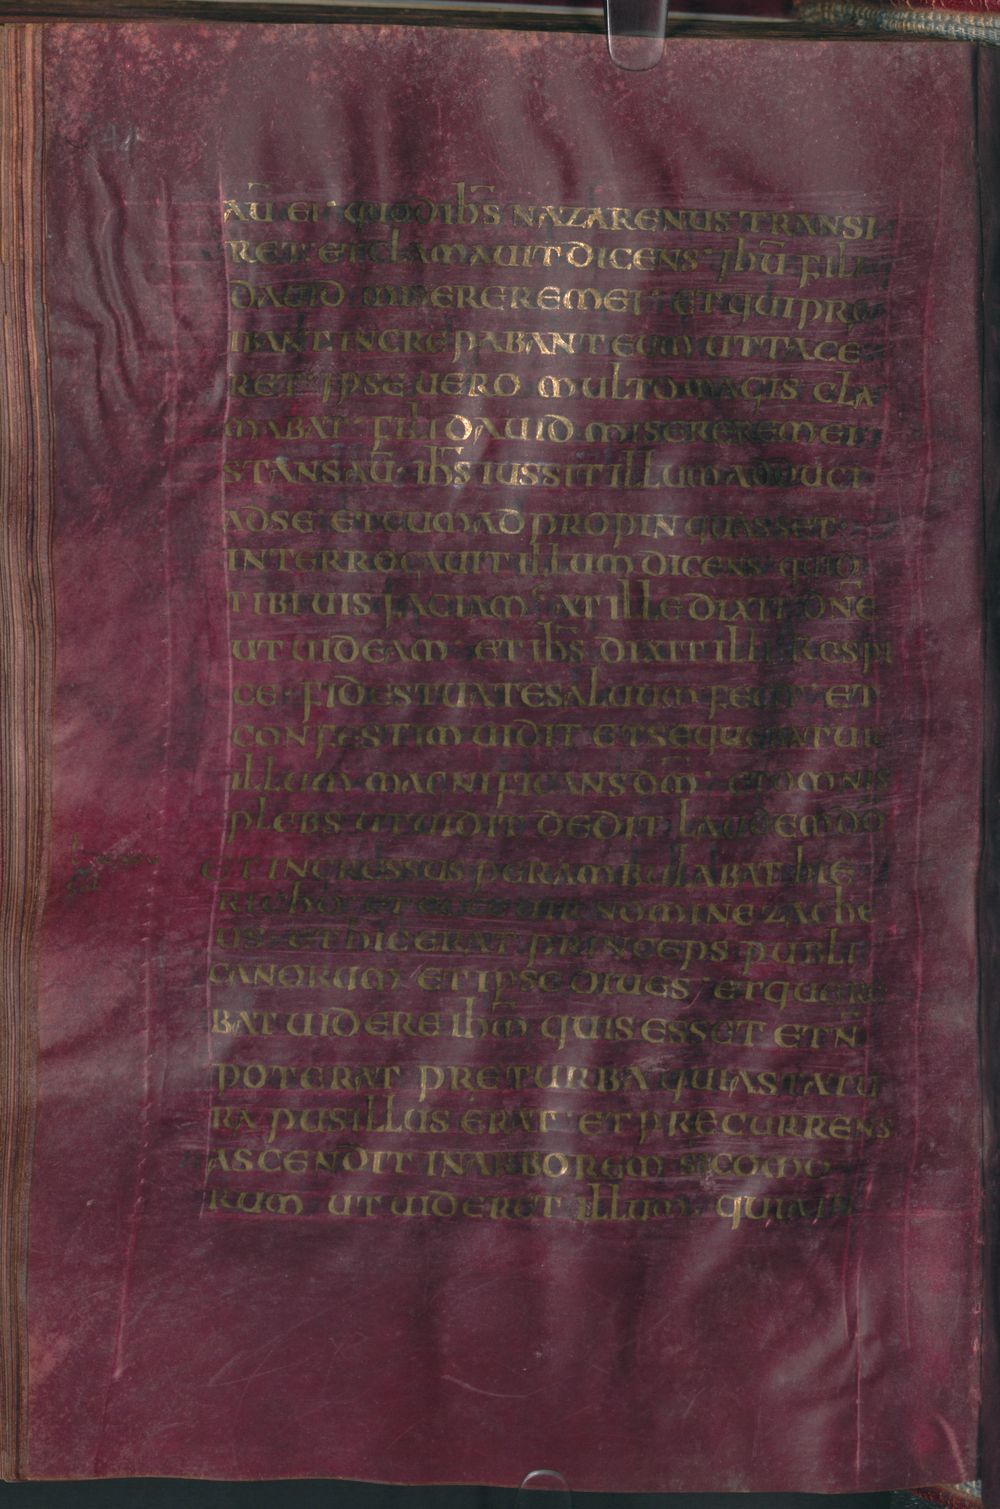 AŪ EI· QUOD IHS̄ NAZARENUS TRANSI
RET· ET CLAMAUIT DICENS· IHŪ FILI
DAUID MISERERE MEI· ET QUI PRE
IBANT INCREPABANT EUM UT TACE
RET· IPSE UERO MULTO MAGIS CLA
MABAT· FILI DAUID MISERERE MEI·
STANS AŪ· IHS̄ IUSSIT ILLUM ADDUCI
AD SE· ET CUM ADPROPINQUASSET·
INTERROGAUIT ILLUM DICENS· QUID
TIBI UIS FACIAM· AT ILLE DIXIT DN̄E
UT UIDEAM· ET IHS̄ DIXIT ILLI· RESPI
CE· FIDES TUA TE SALUUM FECIT· ET
CONFESTIM UIDIT ET SEQUEBATUR
ILLUM MAGNIFICANS DM̄· ET OMNIS
PLEBS UT UIDIT DEDIT LAUDEM DO
ET INGRESSUS PERAMBULABAT HIE
RICHO· ET ECCE UIR NOMINE ZACHE
US· ET HIC ERAT PRINCEPS PUBLI
CANORUM· ET IPSE DIUES· ET QUERE
BAT UIDERE IHM̄ QUIS ESSET ET N̄
POTERAT PRE TURBA QUIA STATU
RA PUSILLUS ERAT· ET PRECURRENS
ASCENDIT IN ARBOREM SICOMO
RUM UT UIDERET ILLUM· QUIA IN